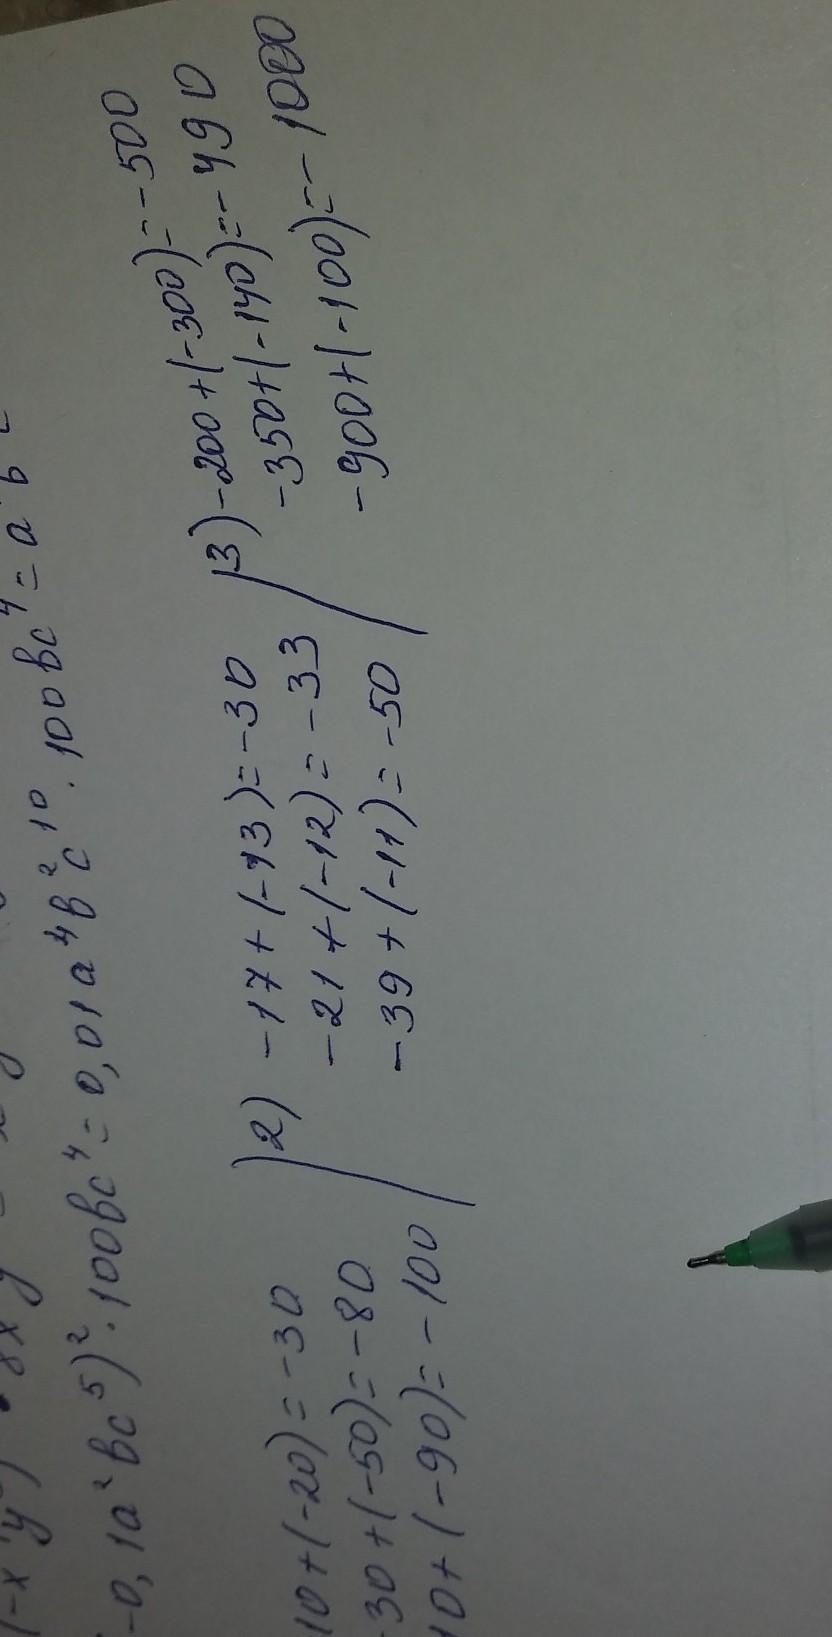 (-0,1a²bc⁵)²·100bc⁴=0,01a⁴b²c¹⁰·100bc⁴=a b =
10+(-20)=-30
-30+(-50)=-80
10+(-90)=-100
2) -17+(-13)=-30
-21+(-12)=-33
-39+(-11)=-50
3) -200+(-300)=-500
-350+(-140)=-490
-900+(-100)=-1000